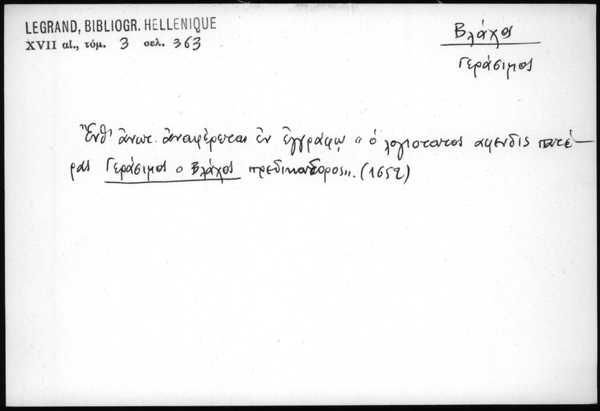 LEGRAND, BIBLIOGR. HELLENIQUE
XVII αἰ., τόμ. 3 σελ. 363
Βλάχος
Γεράσιμος
Ἔνθ' ἄνωτ. ἀναφέρεται ἐν ἐγγράφῳ "ὁ λογιοτατος αφενδις πατέ-
ρας Γεράσιμος ο Βλάχος πρεδικαδορος". (1652)